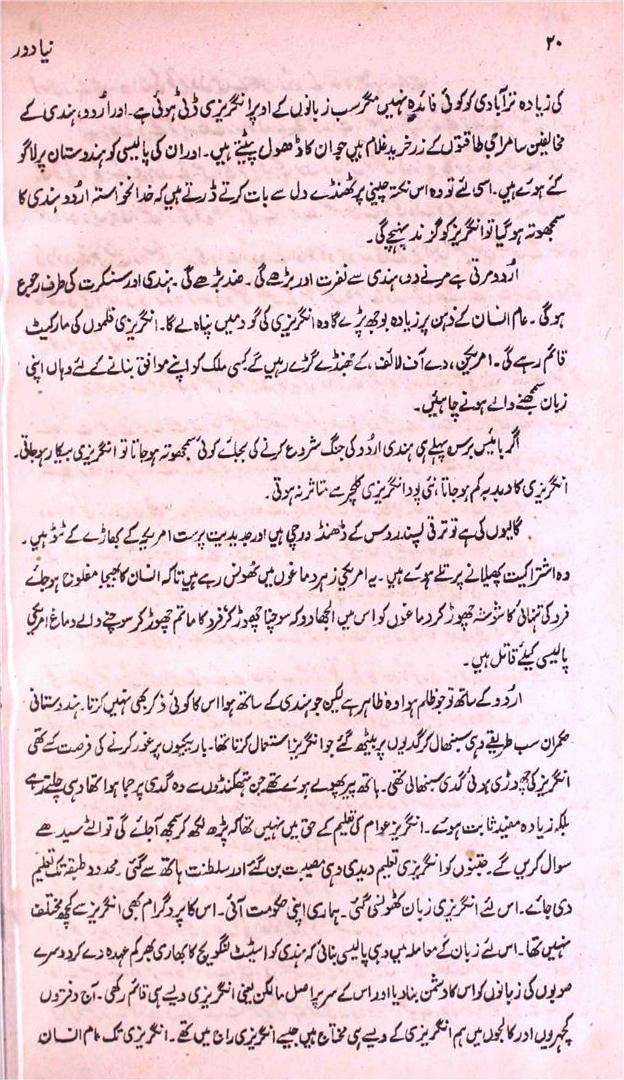 ۲۰
نیا دور
کی زیادہ تر آبادی کو کوئی فائدہ نہیں مگر سب زبانوں کے اوپر انگریزی ڈٹی ہوئی ہے۔ اور اُردو، ہندی کے
مخالفین سامراجی طاقتوں کے زر خرید غلام ہیں جو ان کا ڈھول پیٹتے ہیں۔ اور ان کی پالیسی کو ہندوستان پر لاگو
کئے ہوئے ہیں۔ اسی لئے تو وہ اس نکتہ چینی پر ٹھنڈے دل سے بات کرتے ڈرتے ہیں کہ خدانخواستہ اردو ہندی کا
سمجھوتہ ہو گیا تو انگریز کو گزند پہنچے گی۔
اُردو مرتی ہے مرنے دو، ہندی سے نفرت اور بڑھے گی۔ ضد بڑھے گی۔ ہندی اور سنسکرت کی طرف رجوع
ہو گی۔ عام انسان کے ذہن پر زیادہ بوجھ پڑے گا وہ انگریزی کی گود میں پناہ لے گا۔ انگریزی فلموں کی مارکیٹ
قائم رہے گی۔ امریکن، دے آف لائف، کے جھنڈے گڑے رہیں گے کسی ملک کو اپنے موافق بنانے کے لئے وہاں اپنی
زبان سمجھنے والے ہونے چاہئیں۔
اگر بائیس برس پہلے ہی ہندی اردو کی جنگ شروع کرنے کی بجائے کوئی سمجھوتہ ہو جاتا تو انگریزی بیکار ہو جاتی۔
انگریزی کا دبدبہ کم ہو جاتا، نئی پود انگریزی کلچر سے متاثر نہ ہوتی۔
گالیوں کی ہے تو ترقی پسند روس کے ڈھنڈورچی ہیں اور جدیدیت پرست امریکہ کے بھاڑے کے ٹٹو ہیں۔
وہ اشتراکیت پھیلانے پر تلے ہوئے ہیں۔ یہ امریکی زہر دماغوں میں ٹھونس رہے ہیں تاکہ انسان کا بھیجا مفلوج ہو جائے
فرد کی تنہائی کا شوشہ چھوڑ کر دماغوں کو اس میں الجھا دو کہ سوچنا چھوڑ کر فرد کا ماتم چھوڑ کر سوچنے والے دماغ امریکی
پالیسی کیلئے قاتل ہیں۔
اردو کے ساتھ تو جو ظلم ہوا وہ ظاہر ہے لیکن جو ہندی کے ساتھ ہوا اس کا کوئی ذکر بھی نہیں کرتا۔ ہندوستانی
حکمران سب طریقے وہی سنبھال کر گدیوں پر بیٹھ گئے جو انگریز استعمال کرتا تھا۔ باریکیوں پر غور کرنے کی فرصت کسے تھی
انگریز کی چھوڑی ہوئی گدی سنبھالی تھی۔ ہاتھ پیر پھولے ہوئے تھے جن ہتھکنڈوں سے وہ گدی پر جما ہوا تھا وہی چلتے رہے
بلکہ زیادہ مفید ثابت ہوئے۔ انگریز عوام کی تعلیم کے حق میں نہیں تھا کہ پڑھ لکھ کر سمجھ آجائے گی تو الٹے سیدھے
سوال کریں گے۔ جتنوں کو انگریزی تعلیم دیدی وہی مصیبت بن گئے اور سلطنت ہاتھ سے گئی۔ محدود طبقہ تک تعلیم
دی جائے۔ اس لئے انگریزی زبان ٹھونسی گئی۔ ہماری اپنی حکومت آئی۔ اس کا پروگرام بھی انگریز سے کچھ مختلف
نہیں تھا۔ اس لئے زبان کے معاملہ میں وہی پالیسی بنائی کہ ہندی کو اسٹیٹ لنگویج کا بھاری بھر کم عہدہ دے کر دوسرے
صوبوں کی زبانوں کو اس کا دشمن بنا دیا اور اس کے سر پر اصل مالکن یعنی انگریزی ویسے ہی قائم رکھی۔ آج دفتروں
کچہریوں اور کالجوں میں ہم انگریزی کے ویسے ہی محتاج ہیں جیسے انگریزی راج میں تھے۔ انگریزی تک عام انسان